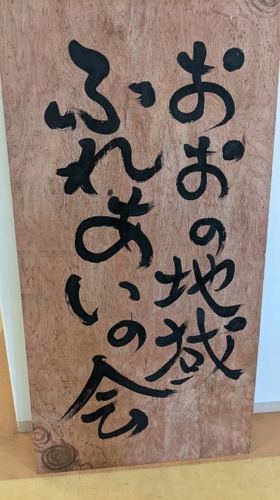 おおの地域
ふれあいの会